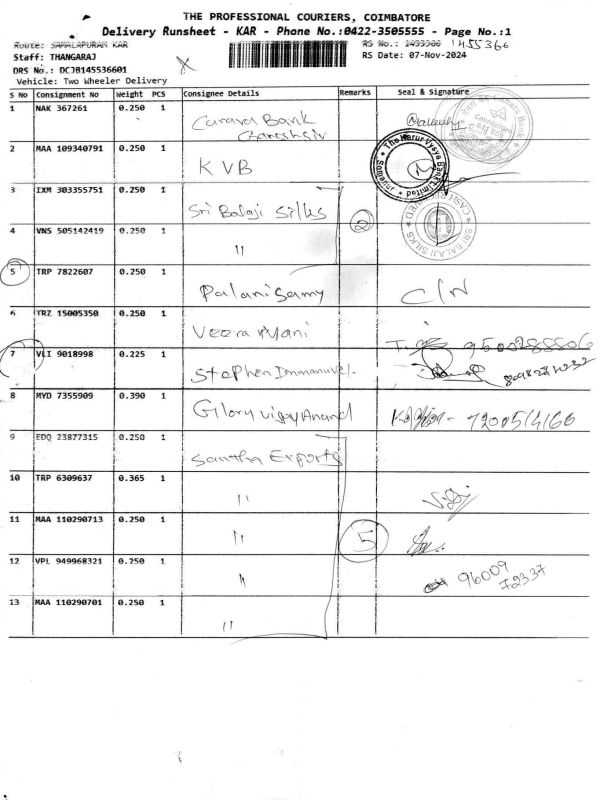 THE PROFESSIONAL COURIERS, COIMBATORE
Delivery Runsheet - KAR - Phone No.:0422-3505555 - Page No.:1
Route: SAMALAPURAM KAR
RS No.: 1455366
Staff: THANGARAJ
RS Date: 07-Nov-2024
DRS No.: DCJB145536601
Vehicle: Two Wheeler Delivery
S No Consignment No Weight PCS Consignee Details Remarks Seal & Signature
1 NAK 367261 0.250 1 Canara Bank
2 MAA 109340791 0.250 1 KVB
The Karur Vysya Bank Limited
3 IXM 303355751 0.250 1 Sri Balaji Silks 2
SRI BALAJI SILKS
4 VNS 505142419 0.250 1 "
5 TRP 7822607 0.250 1 Palanisamy C/N
6 TRZ 15005350 0.250 1 Veera Mani
7 VLI 9018998 0.225 1 Stephen Immanuvel.
8 MYD 7355909 0.390 1 Glory Vijay Anand
9 EDQ 23877315 0.250 1 Santha Exports
10 TRP 6309637 0.365 1 "
11 MAA 110290713 0.250 1 " 5
12 VPL 949968321 0.250 1 " 96009
72337
13 MAA 110290701 0.250 1 "